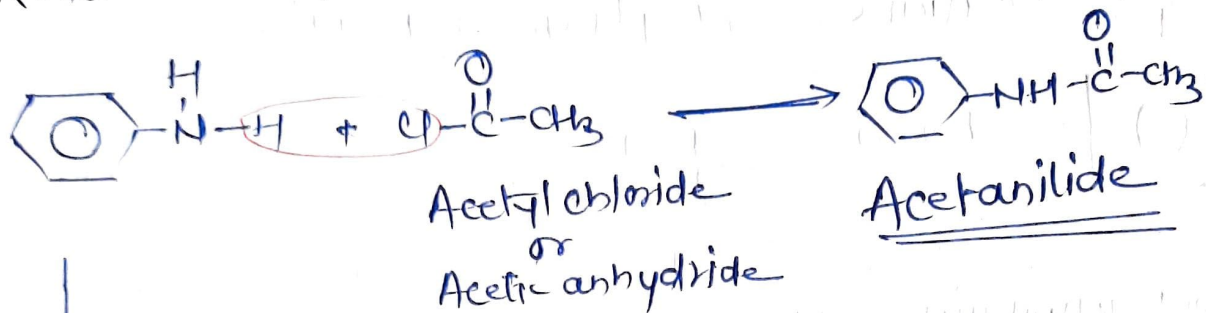 H O O
N-H + Cl-C-CH3 → NH-C-CH3
Acetyl chloride
or
Acetic anhydride
Acetanilide